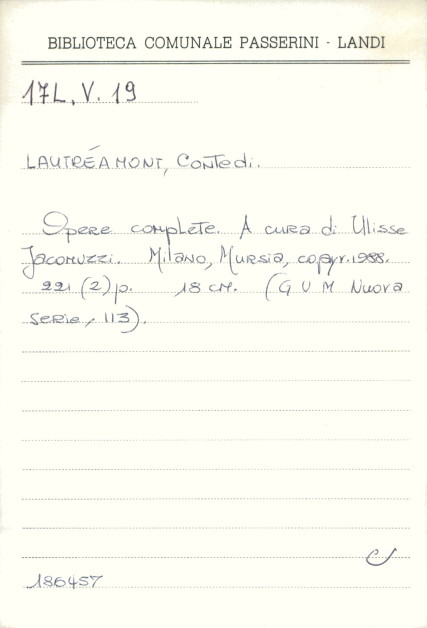 BIBLIOTECA COMUNALE PASSERINI - LANDI
17L. V. 19
LAUTRÉAMONT, Conte di.
Opere complete. A cura di Ulisse
Jacomuzzi. Milano, Mursia, copyr. 1988.
221 (2) p. 18 cm. (G U M Nuova
serie, 113).
186457